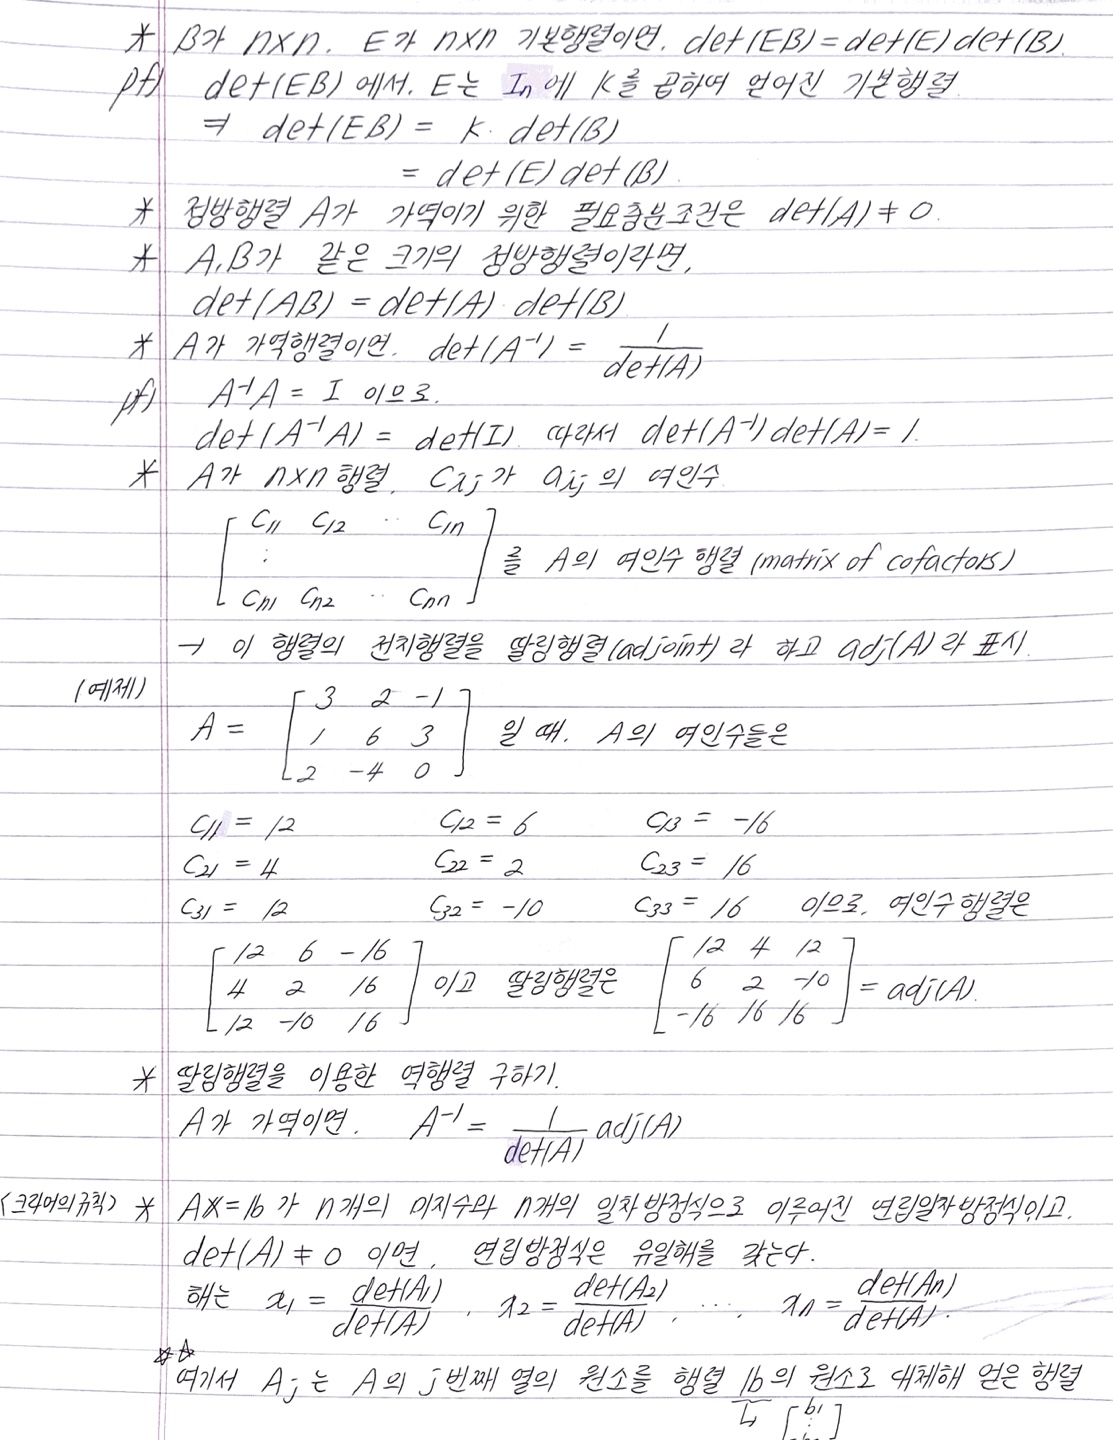 * B가 n×n. E가 n×n 기본행렬이면. det(EB) = det(E) det(B).
pf) det(EB) 에서. E는 In에 K를 곱하여 얻어진 기본행렬.
⇒ det(EB) = k. det(B)
= det(E) det(B).
* 정방행렬 A가 가역이기 위한 필요충분조건은 det(A) ≠ 0.
* A,B가 같은 크기의 정방행렬이라면,
det(AB) = det(A)·det(B)
* A가 가역행렬이면. det(A⁻¹) = 1/det(A)
pf) A⁻¹A = I 이므로.
det(A⁻¹A) = det(I). 따라서 det(A⁻¹)det(A) = 1.
* A가 n×n 행렬. Cij가 aij의 여인수.
[C11 C12 ·· C1n
:
Cn1 Cn2 ·· Cnn] 를 A의 여인수 행렬 (matrix of cofactors)
→ 이 행렬의 전치행렬을 딸림행렬(adjoint)라 하고 adj(A)라 표시.
(예제)
A = [3 2 -1
1 6 3
2 -4 0] 일 때. A의 여인수들은
C11 = 12 C12 = 6 C13 = -16
C21 = 4 C22 = 2 C23 = 16
C31 = 12 C32 = -10 C33 = 16 이므로. 여인수 행렬은
[12 6 -16
4 2 16
12 -10 16] 이고 딸림행렬은 [12 4 12
6 2 -10
-16 16 16] = adj(A).
* 딸림행렬을 이용한 역행렬 구하기.
A가 가역이면. A⁻¹ = 1/det(A) adj(A)
<크라머의 규칙> * Ax=b가 n개의 미지수와 n개의 일차방정식으로 이루어진 연립일차방정식이고.
det(A) ≠ 0 이면. 연립방정식은 유일해를 갖는다.
해는 x1 = det(A1)/det(A), x2 = det(A2)/det(A), ···, xn = det(An)/det(A).
☆☆
여기서 Aj는 A의 j번째 열의 원소를 행렬 b의 원소로 대체해 얻은 행렬
↳ [b1
:
]